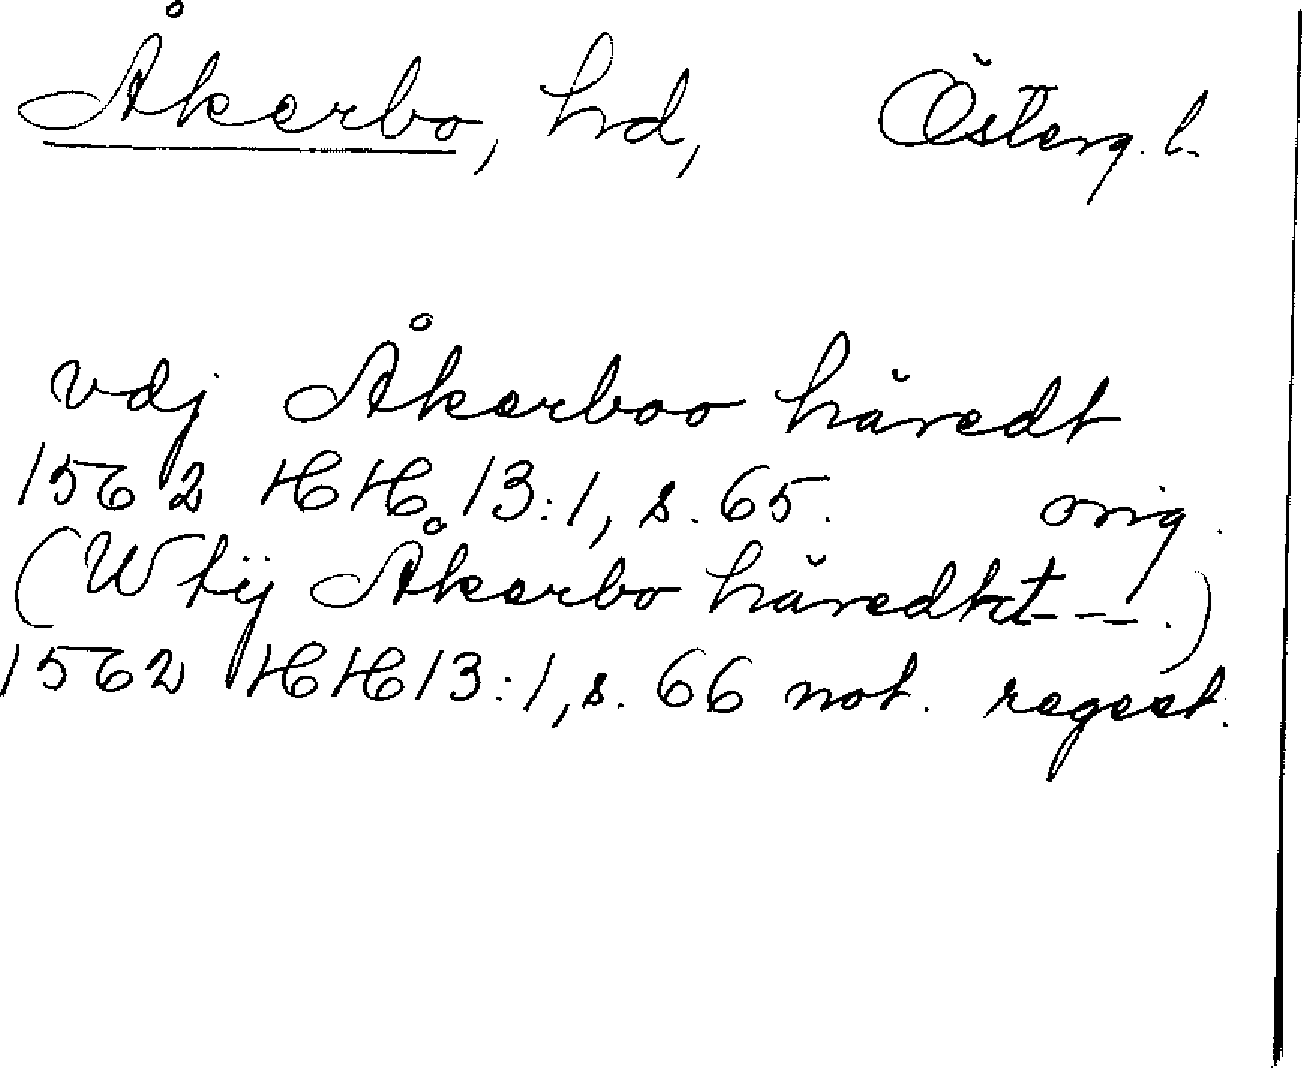 Åkerbo, hd, Österg. l.
vdj Åkerboo häredt
1562 HH 13:1, s. 65. orig.
(Wtij Åkerbo häredht - - -.)
1562 HH 13:1, s. 66 not. regest.